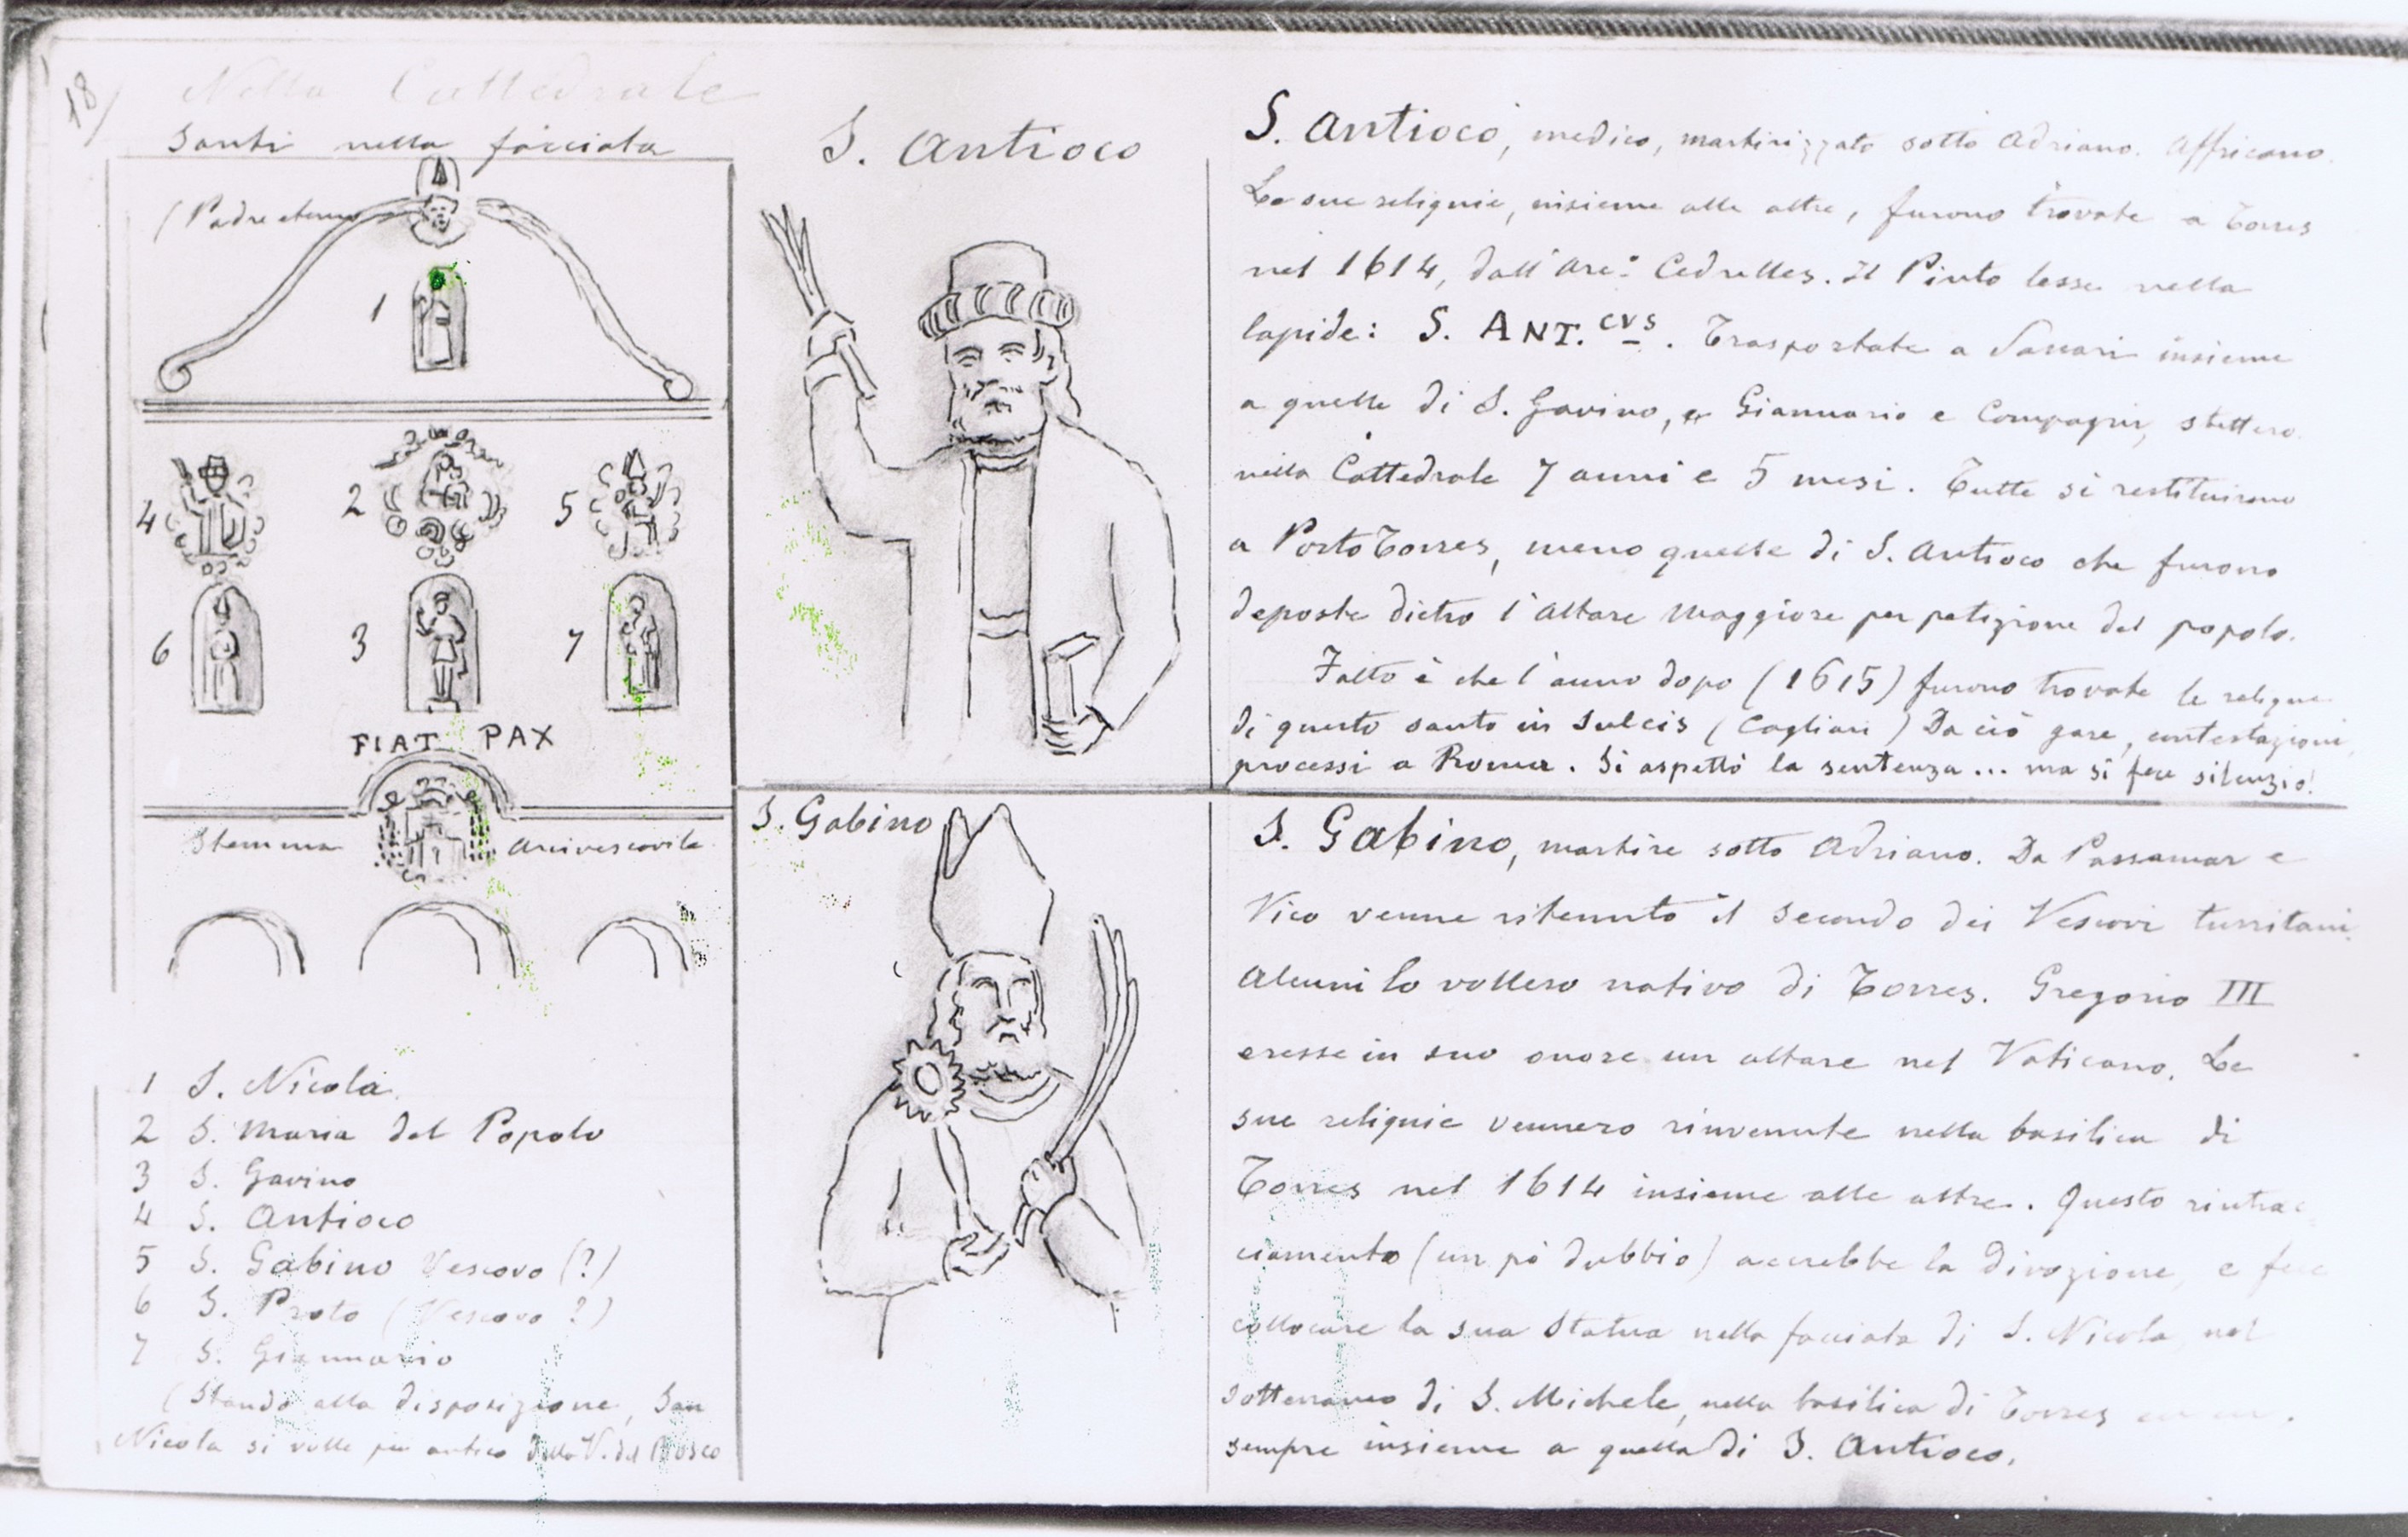 18/
Nella Cattedrale
Santi nella facciata
(Padre eterno
1
4
2
5
6
3
7
FIAT PAX
Stemma Arcivescovile
1 S. Nicola
2 S. Maria del Popolo
3 S. Gavino
4 S. Antioco
5 S. Gabino Vescovo (?)
6 S. Proto (Vescovo ?)
7 S. Giannario
(Stando alla disposizione, San
Nicola si volle più antico della V. del Bosco
S. Antioco
S. Antioco, medico, martirizzato sotto Adriano. Affricano.
Le sue reliquie, insieme alle altre, furono trovate a Torres
nel 1614, dall'Arc.° Cedrelles. Il Pinto lesse nella
lapide: S. ANT.CVS. Trasportate a Sassari insieme
a quelle di S. Gavino, Giannario e Compagni, stettero
nella Cattedrale 7 anni e 5 mesi. Tutte si restituirono
a Porto Torres, meno quelle di S. Antioco che furono
deposte dietro l'Altare Maggiore per petizione del popolo.
Fatto è che l'anno dopo (1615) furono trovate le reliquie
di questo santo in Sulcis (Cagliari) Da ciò gare, contestazioni,
processi a Roma. Si aspettò la sentenza... ma si fece silenzio!
S. Gabino
S. Gabino, martire sotto Adriano. Da Passamar e
Vico venne ritenuto il secondo dei Vescovi turritani.
Alcuni lo vollero nativo di Torres. Gregorio III
eresse in suo onore un altare nel Vaticano. Le
sue reliquie vennero rinvenute nella basilica di
Torres nel 1614 insieme alle altre. Questo rintrac
ciamento (un pò dubbio) accrebbe la divozione, e fece
collocare la sua Statua nella facciata di S. Nicola, nel
sotterraneo di S. Michele, nella basilica di Torres
sempre insieme a quella di S. Antioco.